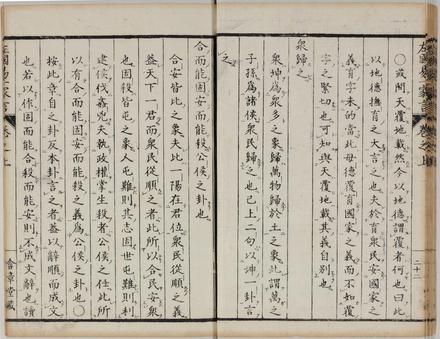 ○或問天覆地載然今以地德謂覆者何也曰此
以地德撫育之大言之也夫於育衆民安國家之
義育字未的當此毋德覆育國家之義而不如覆
字之緊切也可知與天覆地載其義自別也
衆歸之
衆坤爲衆多之象萬物歸於土之象此謂萬之
子孫爲諸侯衆民歸之也已上二句以坤一卦言
之
合而能固安而能殺公侯之卦也
合安皆比之象夫比一陽在君位衆民從順之義
蓋天下一君而衆民從順之者此所以合民安衆
也固殺皆屯之象人屯難則其志固世屯難則利
建侯伐姦兇夫執政權掌生殺者公侯之任此所
以有合而能固安而能殺之義爲公侯之卦也○
按此章自之卦反本卦言之者蓋以辭順而成文
也若以作固而能合殺而能安則不成文辭也讀
左國易一家言
卷之上
二十
會章堂藏